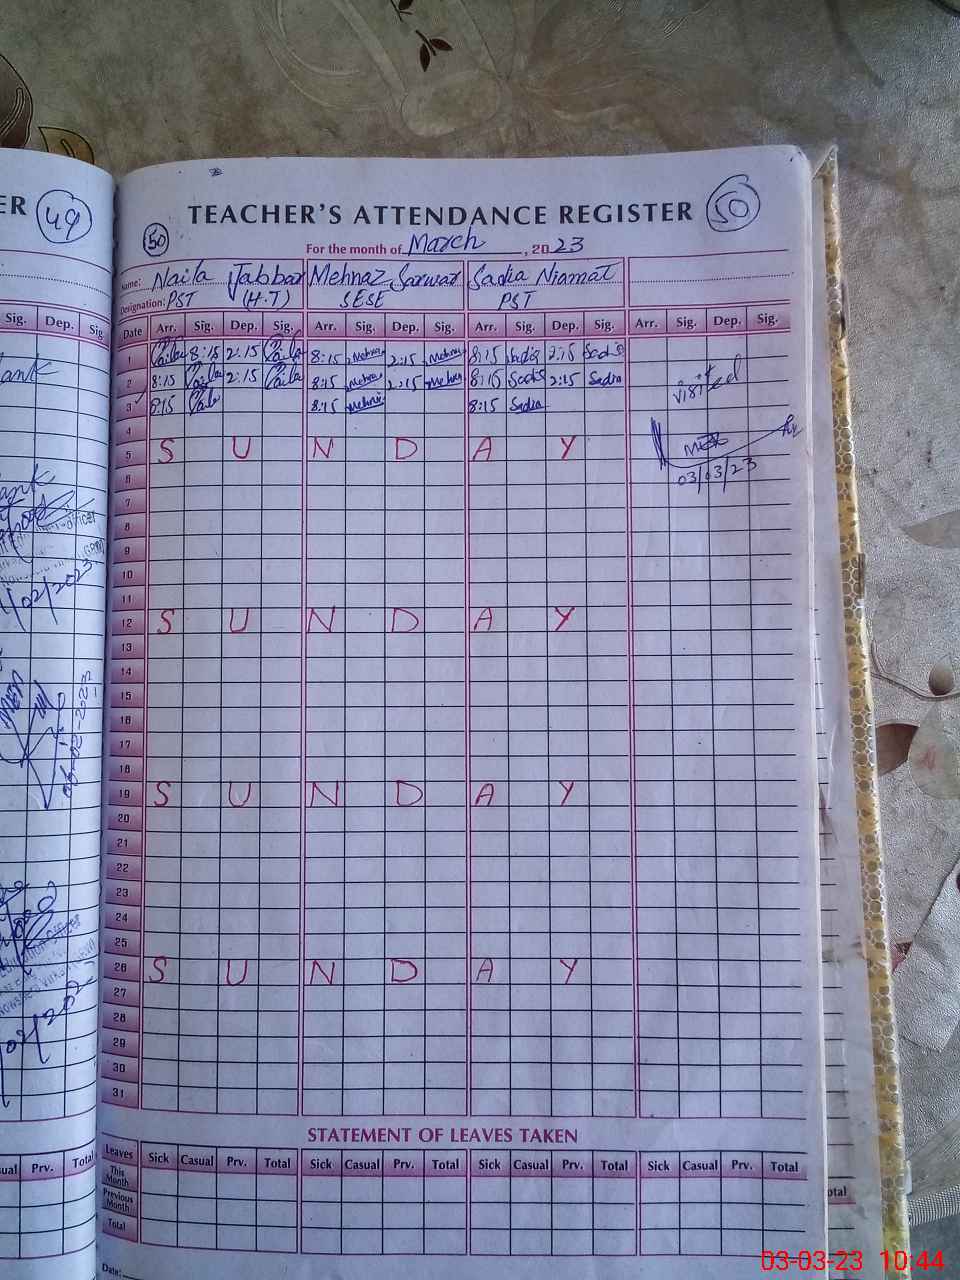 ER 49
TEACHER'S ATTENDANCE REGISTER 50
50
For the month of March, 2023
Name: Naila Jabbar Mehnaz Sarwar Sadia Niamat
Designation: PST (H.T) SESE PST
Sig. Dep. Sig
Date Arr. Sig. Dep. Sig. Arr. Sig. Dep. Sig. Arr. Sig. Dep. Sig. Arr. Sig. Dep. Sig.
1 Naila 8:15 2:15 Naila 8:15 Mehnaz 2:15 Mehnaz 8:15 Sadia 2:15 Sadia
2 8:15 Naila 2:15 Naila 8:15 Mehnaz 2:15 Mehnaz 8:15 Sadia 2:15 Sadia visited
3 8:15 Naila 8:15 Mehnaz 8:15 Sadia
4
5 S U N D A Y
03/03/23
6
7
8
9
10
11
12 S U N D A Y
13
14
15
16
17
18
19 S U N D A Y
20
21
22
23
24
25
26 S U N D A Y
27
28
29
30
31
STATEMENT OF LEAVES TAKEN
ual Prv. Total
Leaves Sick Casual Prv. Total Sick Casual Prv. Total Sick Casual Prv. Total Sick Casual Prv. Total
This Month
Previous Month
otal
Total
Date:
03-03-23 10:44